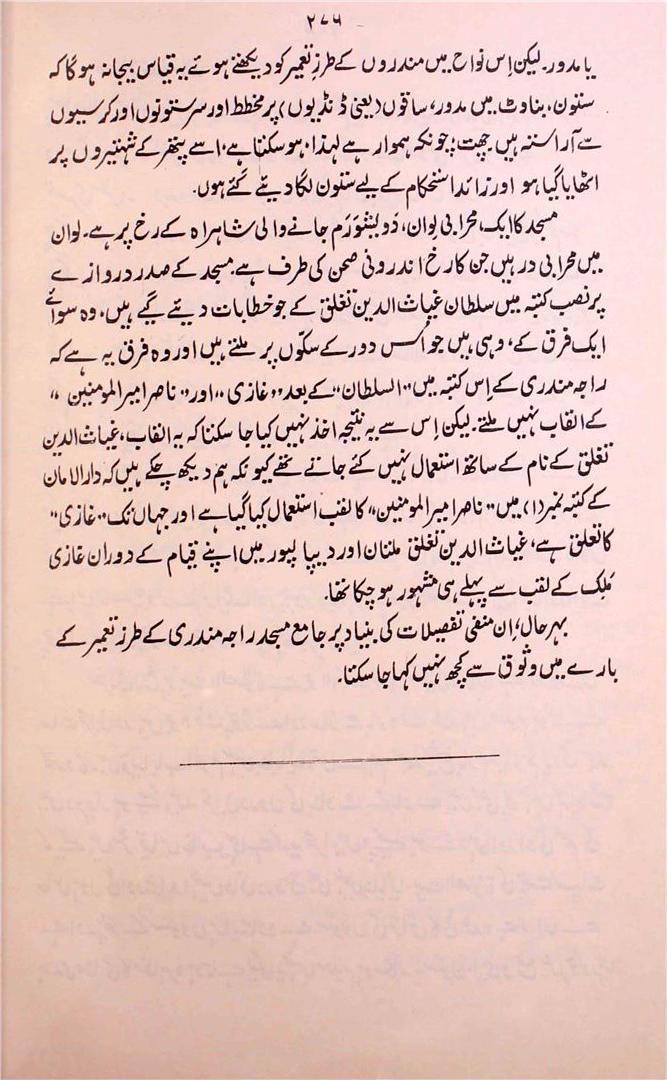 ۲۷۶
یا مدور۔ لیکن اِس نواح میں مندروں کے طرزِ تعمیر کو دیکھتے ہوئے یہ قیاس بیجا نہ ہوگا کہ
ستون، بناوٹ میں مدور، ساقوں (یعنی ڈنڈیوں) پر مخطط اور سر ستونوں اور کرسیوں
سے آراستہ ہیں۔ چھت؛ چونکہ ہموار ہے لہٰذا، ہوسکتا ہے، اسے پتھر کے شہتیروں پر
اٹھایا گیا ہو اور زائد استحکام کے لیے ستون لگا دیئے گئے ہوں۔
مسجد کا ایک، محرابی لِوان، دَولیشوَرَم جانے والی شاہراہ کے رخ پر ہے۔ لِوان
میں محرابی در ہیں جن کا رخ اندرونی صحن کی طرف ہے۔ مسجد کے صدر دروازے
پر نصب کتبہ میں سلطان غیاث الدین تغلق کے جو خطابات دیئے گیے ہیں، وہ سوائے
ایک فرق کے، وہی ہیں جو اُس دور کے سکّوں پر ملتے ہیں اور وہ فرق یہ ہے کہ
راجہ مندری کے اِس کتبہ میں "السلطان" کے بعد "غازی" اور "ناصر امیر المومنین"
کے القاب نہیں ملتے۔ لیکن اِس سے یہ نتیجہ اخذ نہیں کیا جا سکتا کہ یہ القاب، غیاث الدین
تغلق کے نام کے ساتھ استعمال نہیں کئے جاتے تھے کیونکہ ہم دیکھ چکے ہیں کہ دارالامان
کے کتبہ نمبر (۱) میں "ناصر امیر المومنین" کا لقب استعمال کیا گیا ہے اور جہاں تک "غازی"
کا تعلق ہے، غیاث الدین تغلق ملتان اور دیپالپور میں اپنے قیام کے دوران غازی
مَلِک کے لقب سے پہلے ہی مشہور ہو چکا تھا۔
بہرحال، اِن منفی تفصیلات کی بنیاد پر جامع مسجد راجہ مندری کے طرزِ تعمیر کے
بارے میں وثوق سے کچھ نہیں کہا جاسکتا۔